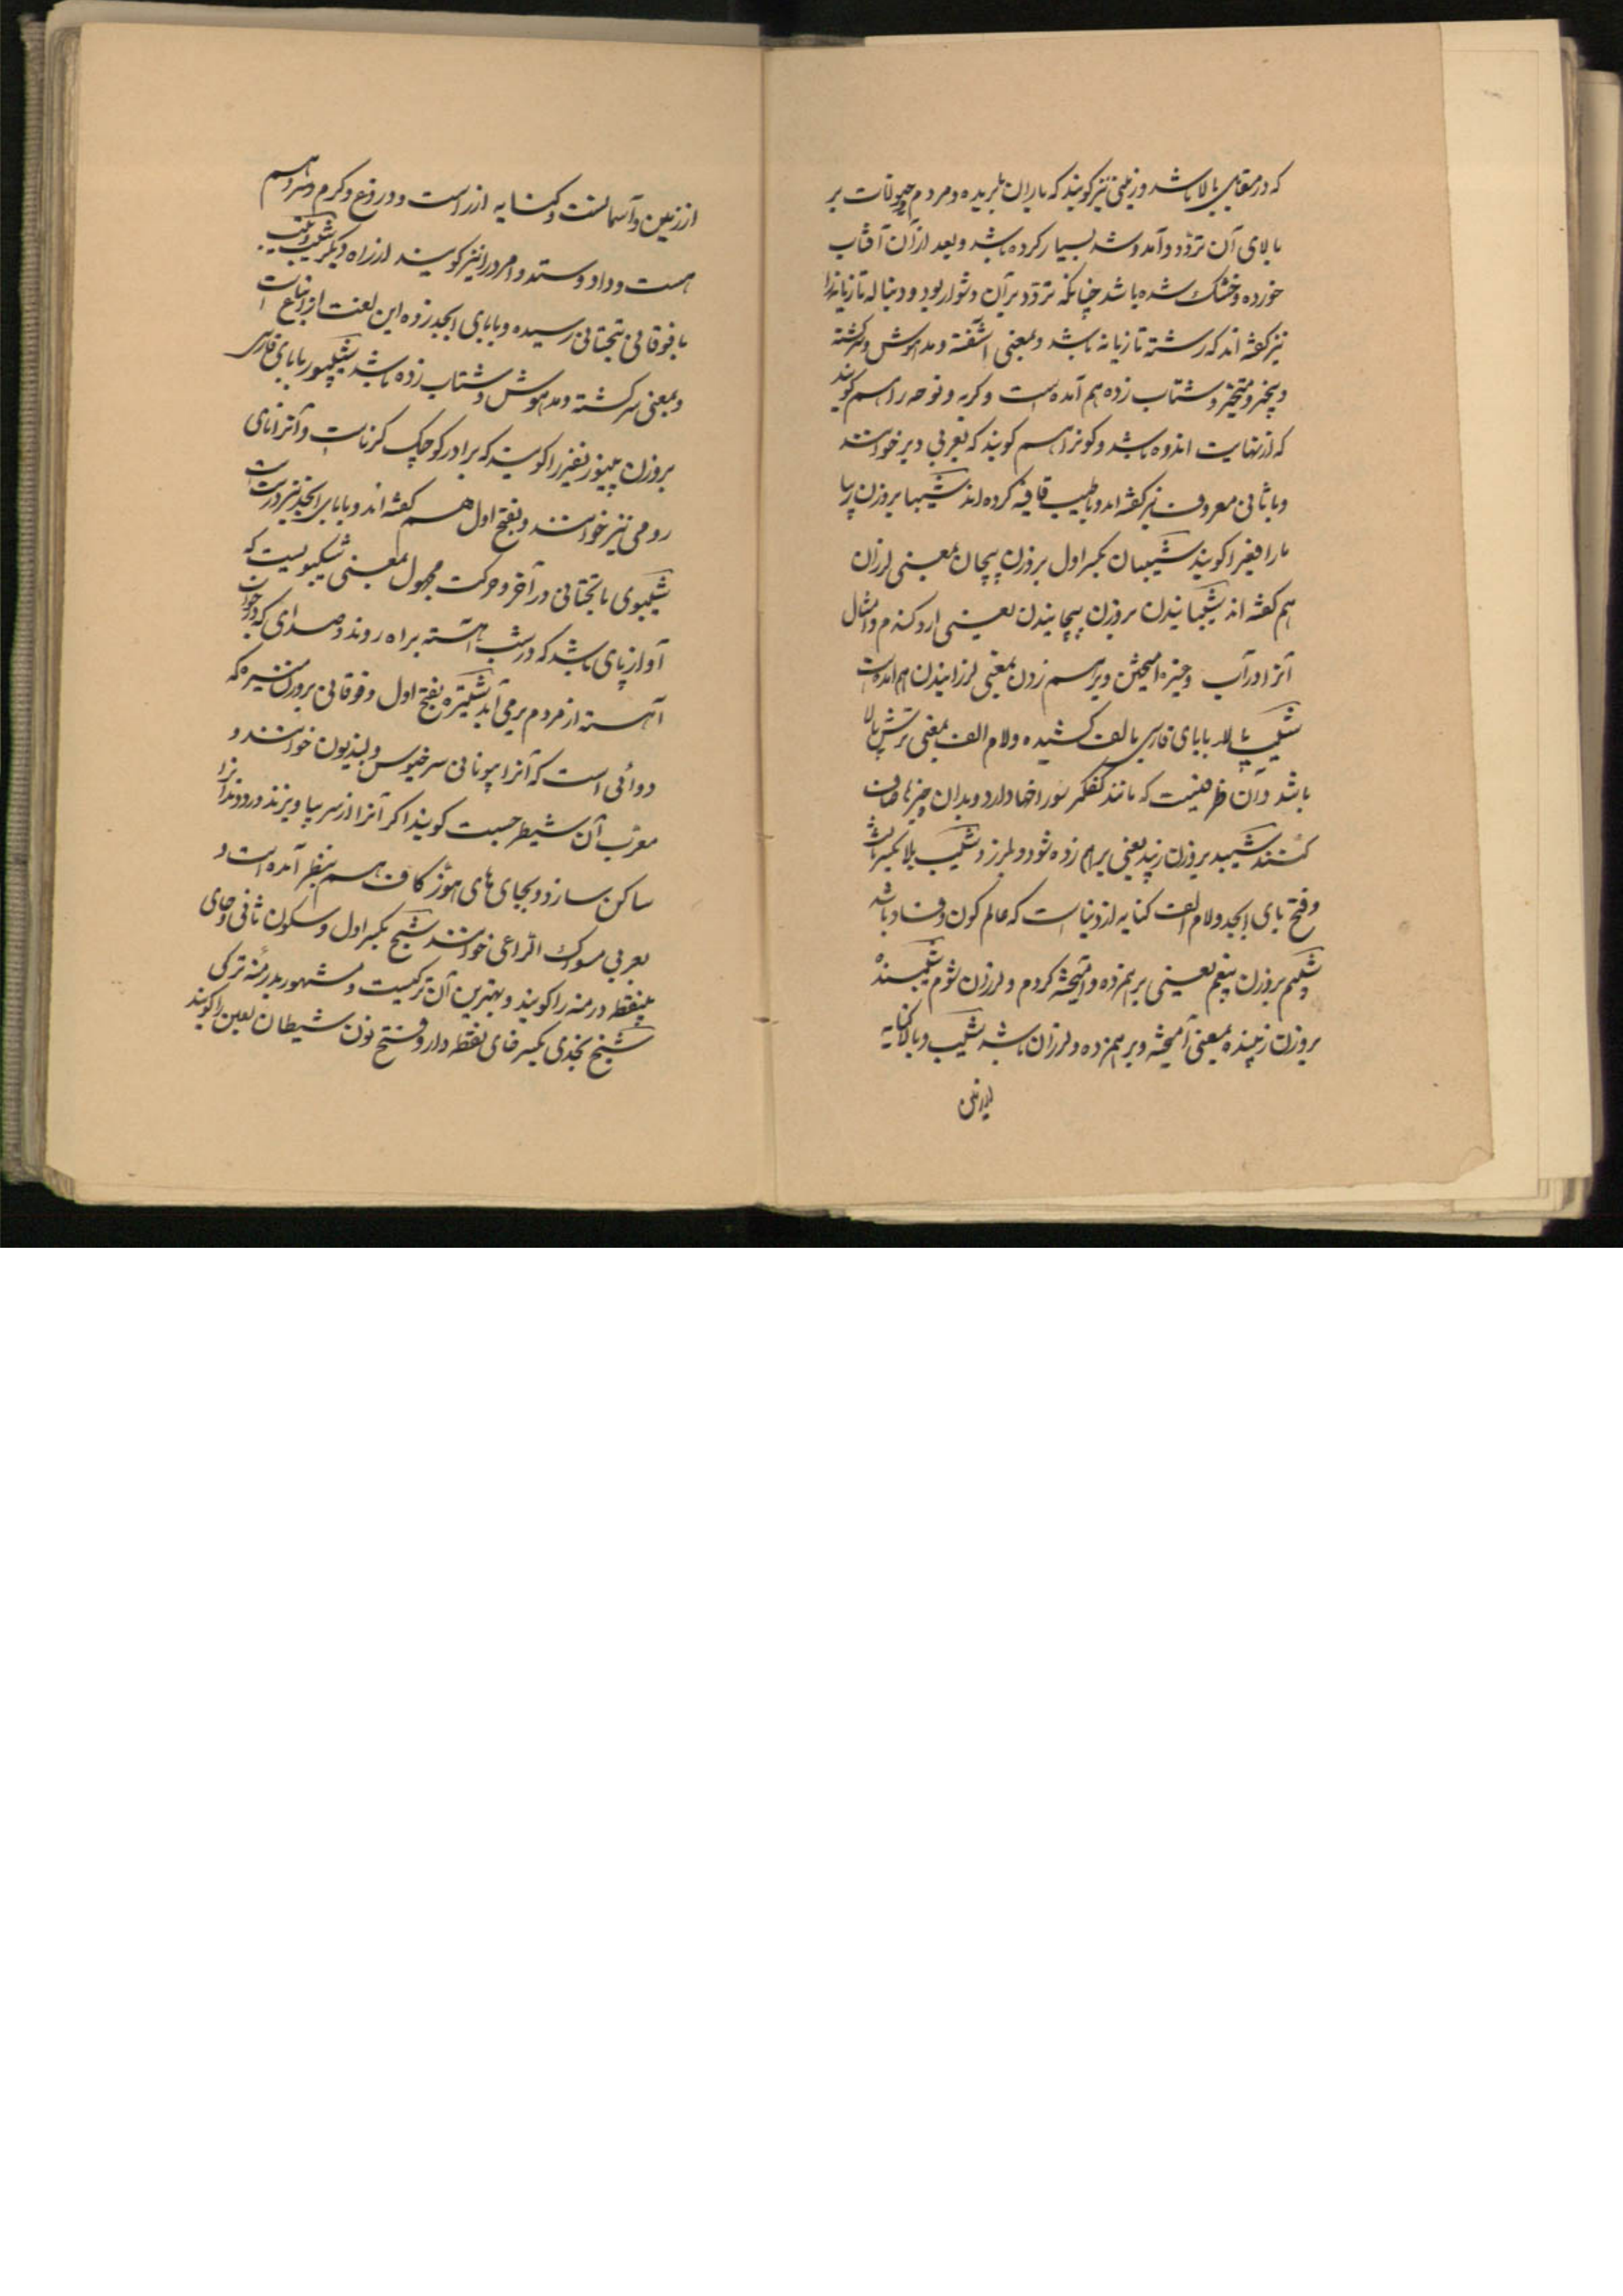 که در مقابل بالا باشد و زمینی نیز کویند که باران باریده و مردم و حیوانات بر
بالای آن تردد و آمد و شد بسیار کرده باشد و بعد از آن آفتاب
خورده و خشک شده باشد چنانکه تردد بر آن دشوار بود و دنباله تازیانه را
نیز کفته اند که رشته تازیانه باشد و بمعنی آشفته و مدهوش و سرکشته
و متحیر و شتاب زده هم آمده است و کریه و نوحه را هم کویند
که از نهایت اندوه باشد و کونرا هم کویند که بعربی دبر خوانند
و با ثانی معروف نیز کفته اند و با طیب قافیه کرده اند شیبا بروزن زیبا
مار افعی را کویند شیبان بکسر اول بروزن پیچان بمعنی لرزان
هم کفته اند شیبانیدن بروزن پیچانیدن یعنی آرد کندم و امثال
آنرا در آب و خمیره آمیختن و برهم زدن بمعنی لرزانیدن هم آمده است
شیب پالا با بای فارسی بالف کشیده و لام الف بمعنی ترشی پالا
باشد و آن ظرفیست که مانند کفکیر سوراخها دارد و بدان چیزها صاف
کنند شیبد بروزن زیبد یعنی برهم زده شود و بلرزد شیب بلا بکسر بای
و فتح بای ابجد و لام الف کنایه از دنیا است که عالم کون و فساد باشد
شیبم بروزن بینم یعنی برهم زده و آمیخته کردم و لرزان شوم شیبنده
بروزن زیبنده بمعنی آمیخته و برهم زده و لرزان باشد شیب و بالا کنایه
از زمین
از زمین و آسمانست و کنایه از راست و دروغ و کرم و سرد هم
هست و داد و ستد و امر را نیز کویند از راه دیکر شیب و تیب
با فوقانی بتحتانی رسیده و ببای ابجد زده این لغت از اتباع است
و بمعنی سرکشته و مدهوش و شتاب زده باشد شیپور با بای فارسی
بروزن بی‌نور نفیر را کویند که برادر کوچک کرناست و آنرا نای
رومی نیز خوانند و بفتح اول هم کفته اند و با بای ابجد نیز درست است
شیبوی با تحتانی در آخر و حرکت مجهول بمعنی شیبو است که
آواز پای باشد که در شب آهسته براه روند و صدای که در خواب
آهسته از مردم برمی آید شیتره بفتح اول و فوقانی بروزن که
دوائی است که آنرا بیونانی خوانند و
معرب آن شیطرج است کویند اکر آنرا از سر بیاویزند درد دندانرا
ساکن سازد و بجای های هوز کاف هم بنظر آمده است و
بعربی مسواک الراعی خوانند شیح بکسر اول و سکون ثانی و حای
بی‌نقطه درمنه را کویند و بهترین آن ترکیست و مشهور بدرمنه ترکی
شیخ نجدی بکسر خای نقطه دار و فتح نون شیطان لعین را کویند